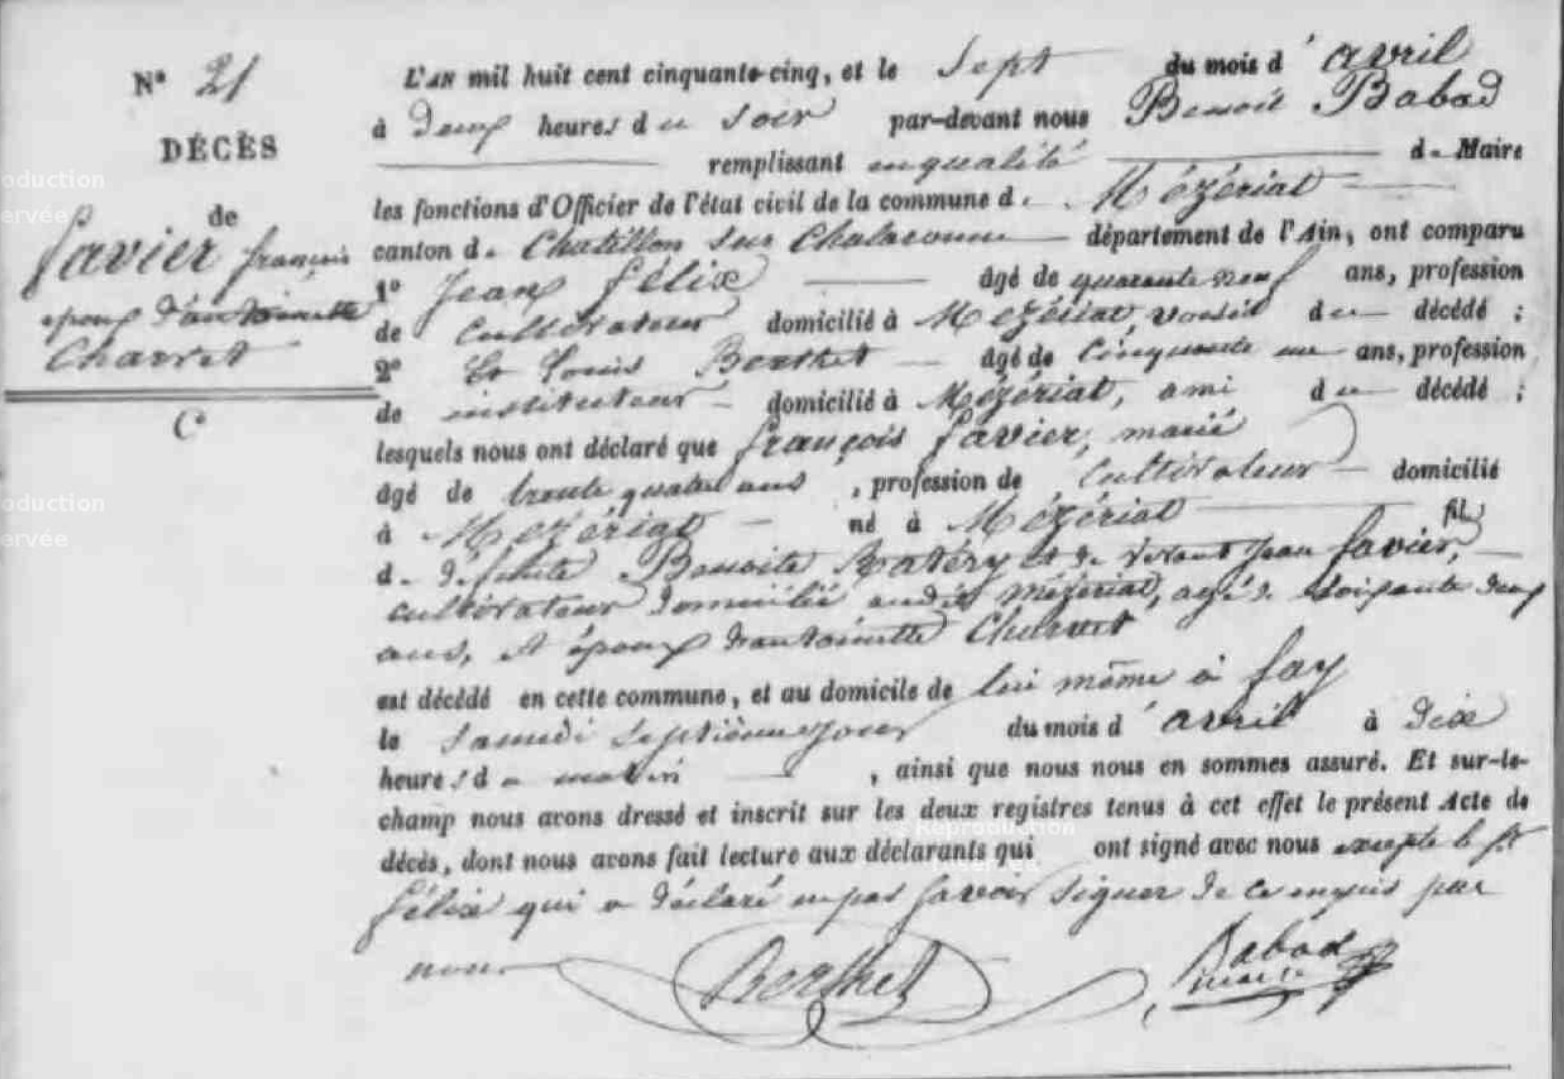 N° 21
DÉCÈS
de
Favier françois
époux d'antoinette
Charvet
L'AN mil huit cent cinquante-cinq, et le Sept du mois d'avril
à Deux heures du Soir par-devant nous Benoit Babad
remplissant en qualité de Maire
les fonctions d'Officier de l'état civil de la commune de Mézériat
canton de Chatillon sur Chalaronne département de l'Ain, ont comparu
1° Jean Félix âgé de quarante neuf ans, profession
de Cultivateur domicilié à Mézériat, voisin du décédé ;
2° Louis Berthet âgé de Cinquante un ans, profession
de instituteur domicilié à Mézériat, ami du décédé ;
lesquels nous ont déclaré que françois Favier, marié
âgé de trente quatre ans, profession de Cultivateur domicilié
à Mézériat né à Mézériat fils
de défunte Benoite et de vivant Jean Favier,
cultivateur domicilié audit Mézériat, agé de Soixante deux
ans, et époux d'antoinette Charvet
est décédé en cette commune, et au domicile de lui même à fay
le Samedi Septième jour du mois d'avril à Dix
heures du matin, ainsi que nous nous en sommes assuré. Et sur-le-
champ nous avons dressé et inscrit sur les deux registres tenus à cet effet le présent Acte de
décès, dont nous avons fait lecture aux déclarants qui ont signé avec nous excepté le st
Félix qui a déclaré ne pas Savoir Signer de ce enquis par
nous
Berthet
Babad
maire
oduction
ervée
oduction
ervée
Reproduction